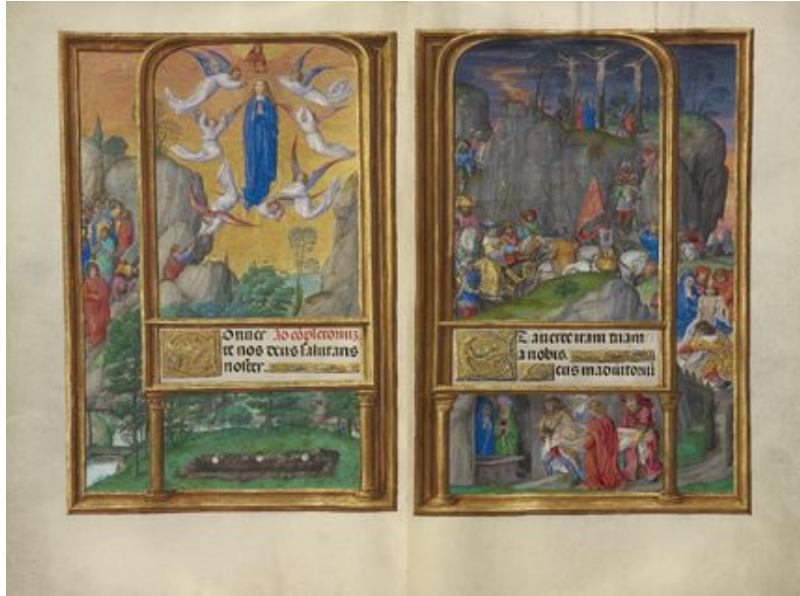 Onuer Ad cōpletoriuz.
te nos deus salutaris
noster.
Et auerte iram tuam
a nobis.
eus in adiutoriū